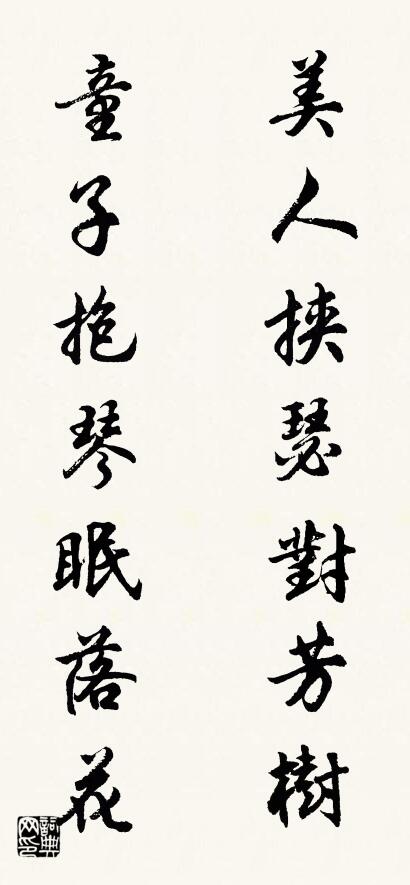 美人挾瑟對芳樹
童子抱琴眠落花